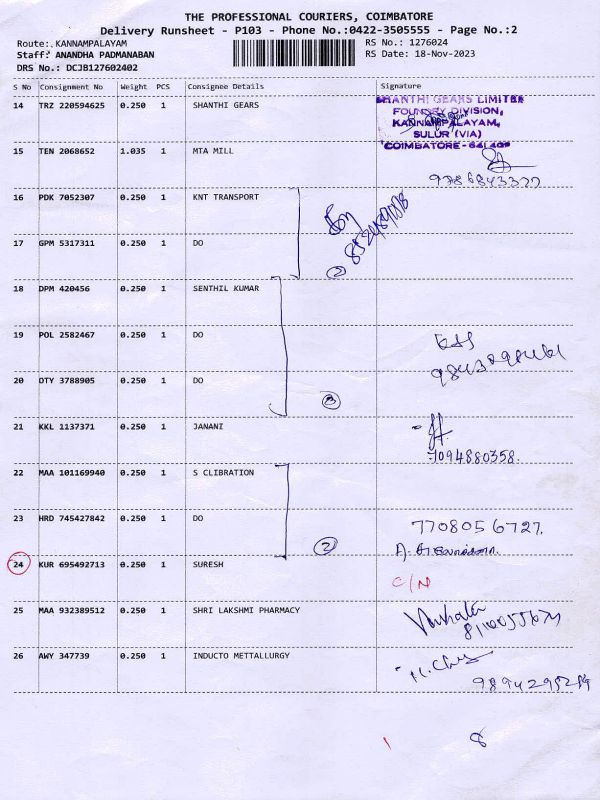 THE PROFESSIONAL COURIERS, COIMBATORE
Delivery Runsheet - P103 - Phone No.:0422-3505555 - Page No.:2
Route: KANNAMPALAYAM RS No.: 1276024
Staff: ANANDHA PADMANABAN RS Date: 18-Nov-2023
DRS No.: DCJB127602402
S No Consignment No Weight PCS Consignee Details Signature
14 TRZ 220594625 0.250 1 SHANTHI GEARS
SHANTHI GEARS LIMITED
FOUNDRY DIVISION,
KANNAMPALAYAM,
SULUR (VIA)
COIMBATORE - 641 402
15 TEN 2068652 1.035 1 MTA MILL
9786843377
16 PDK 7052307 0.250 1 KNT TRANSPORT
17 GPM 5317311 0.250 1 DO
2
18 DPM 420456 0.250 1 SENTHIL KUMAR
19 POL 2582467 0.250 1 DO
20 DTY 3788905 0.250 1 DO
3
21 KKL 1137371 0.250 1 JANANI
7094880358.
22 MAA 101169940 0.250 1 S CLIBRATION
23 HRD 745427842 0.250 1 DO
7708056727.
2
24 KUR 695492713 0.250 1 SURESH
C/N
25 MAA 932389512 0.250 1 SHRI LAKSHMI PHARMACY
26 AWY 347739 0.250 1 INDUCTO METTALLURGY
8